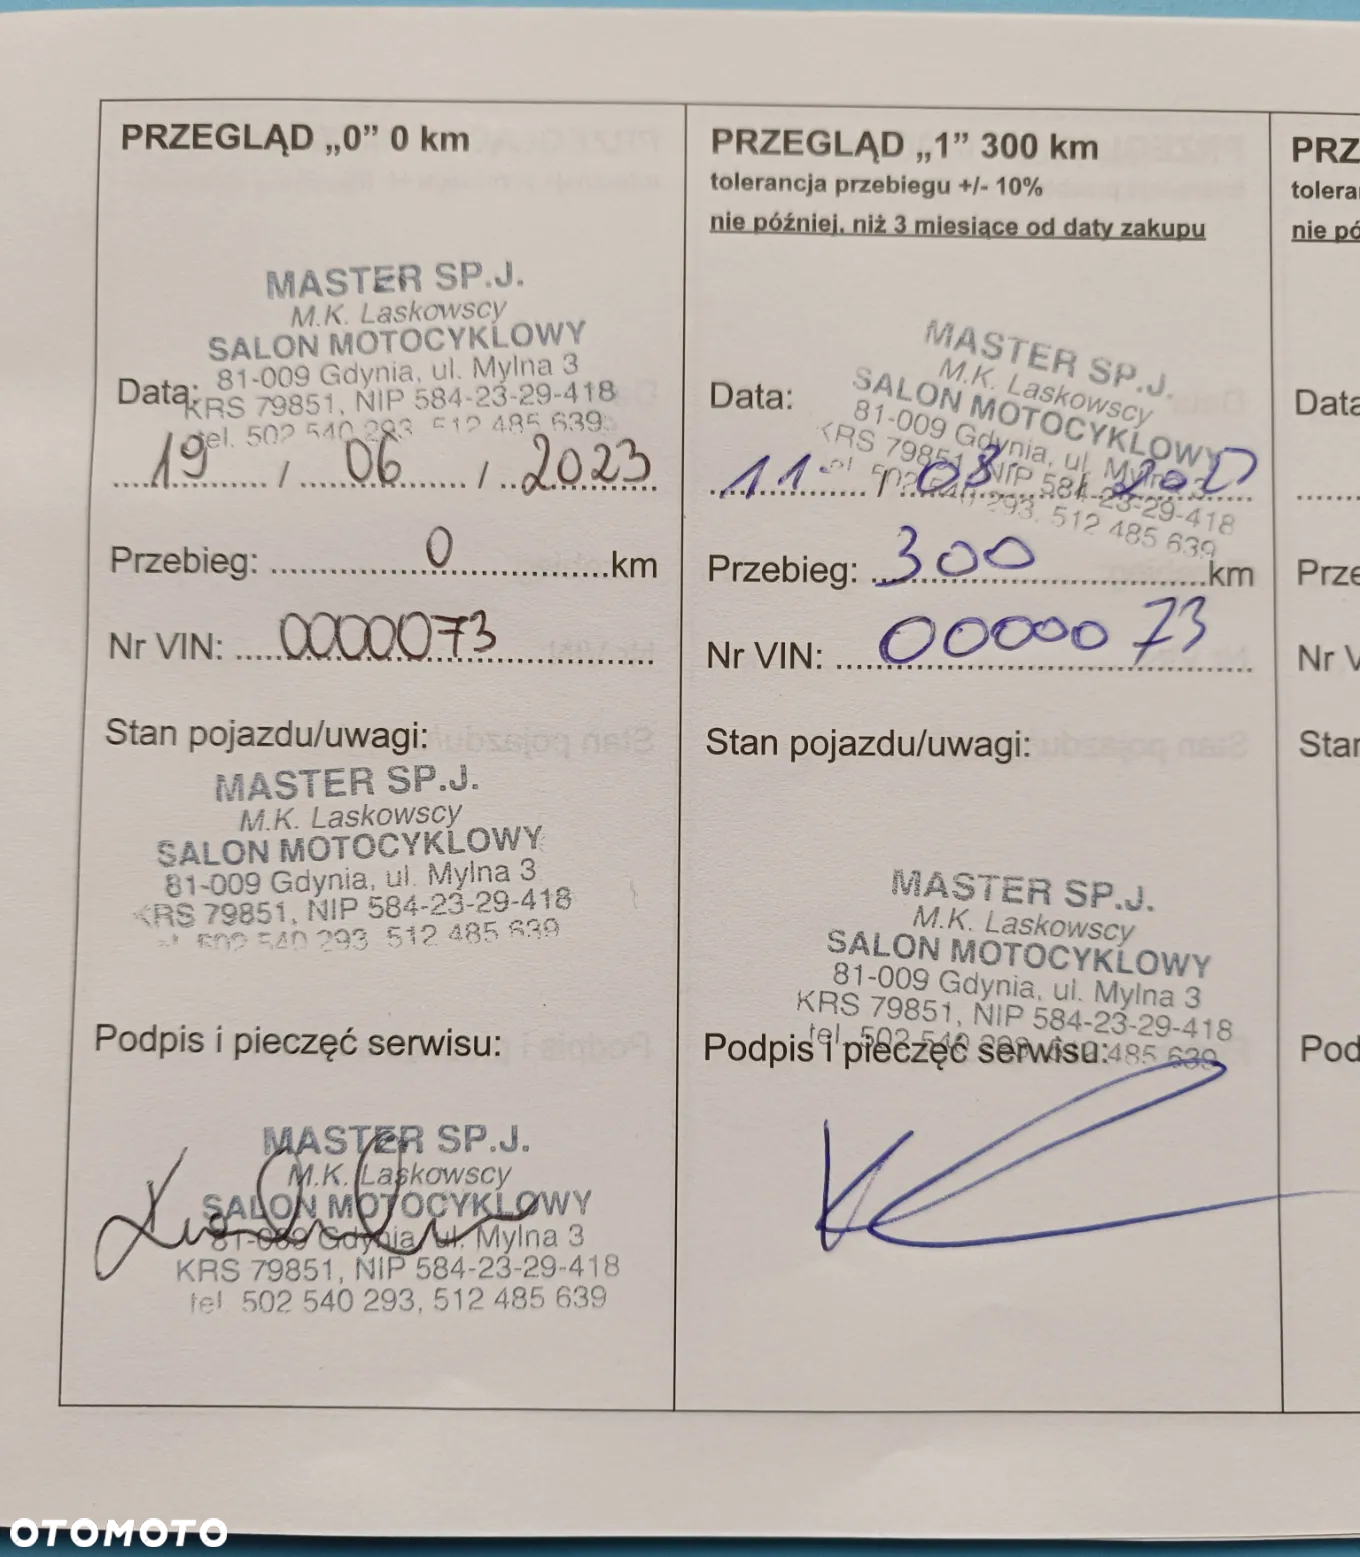 PRZEGLĄD „0” 0 km
MASTER SP.J.
M.K. Laskowscy
SALON MOTOCYKLOWY
81-009 Gdynia, ul. Mylna 3
Data:
KRS 79851, NIP 584-23-29-418
tel. 502 540 293, 512 485 639
19 / 06 / 2023
Przebieg: 0 km
Nr VIN: 0000073
Stan pojazdu/uwagi:
MASTER SP.J.
M.K. Laskowscy
SALON MOTOCYKLOWY
81-009 Gdynia, ul. Mylna 3
KRS 79851, NIP 584-23-29-418
tel. 502 540 293, 512 485 639
Podpis i pieczęć serwisu:
MASTER SP.J.
M.K. Laskowscy
SALON MOTOCYKLOWY
81-009 Gdynia, ul. Mylna 3
KRS 79851, NIP 584-23-29-418
tel. 502 540 293, 512 485 639
PRZEGLĄD „1” 300 km
tolerancja przebiegu +/- 10%
nie później, niż 3 miesiące od daty zakupu
MASTER SP.J.
M.K. Laskowscy
SALON MOTOCYKLOWY
81-009 Gdynia, ul. Mylna 3
KRS 79851, NIP 584-23-29-418
tel. 502 540 293, 512 485 639
Data:
11 /
Przebieg: 300 km
Nr VIN: 0000073
Stan pojazdu/uwagi:
MASTER SP.J.
M.K. Laskowscy
SALON MOTOCYKLOWY
81-009 Gdynia, ul. Mylna 3
KRS 79851, NIP 584-23-29-418
tel. 502 540 293, 512 485 639
Podpis i pieczęć serwisu:
PRZ
tolera
nie pó
Data
Prze
Nr V
Star
Pod
OTOMOTO